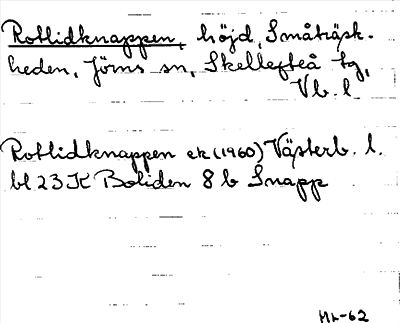 Rotlidknappen, höjd, Småträsk-
heden, Jörns sn, Skellefteå tg,
Vb. l.
Rotlidknappen ek (1960) Västerb. l.
bl 23 K Boliden 8 b Snapp
Hk-62